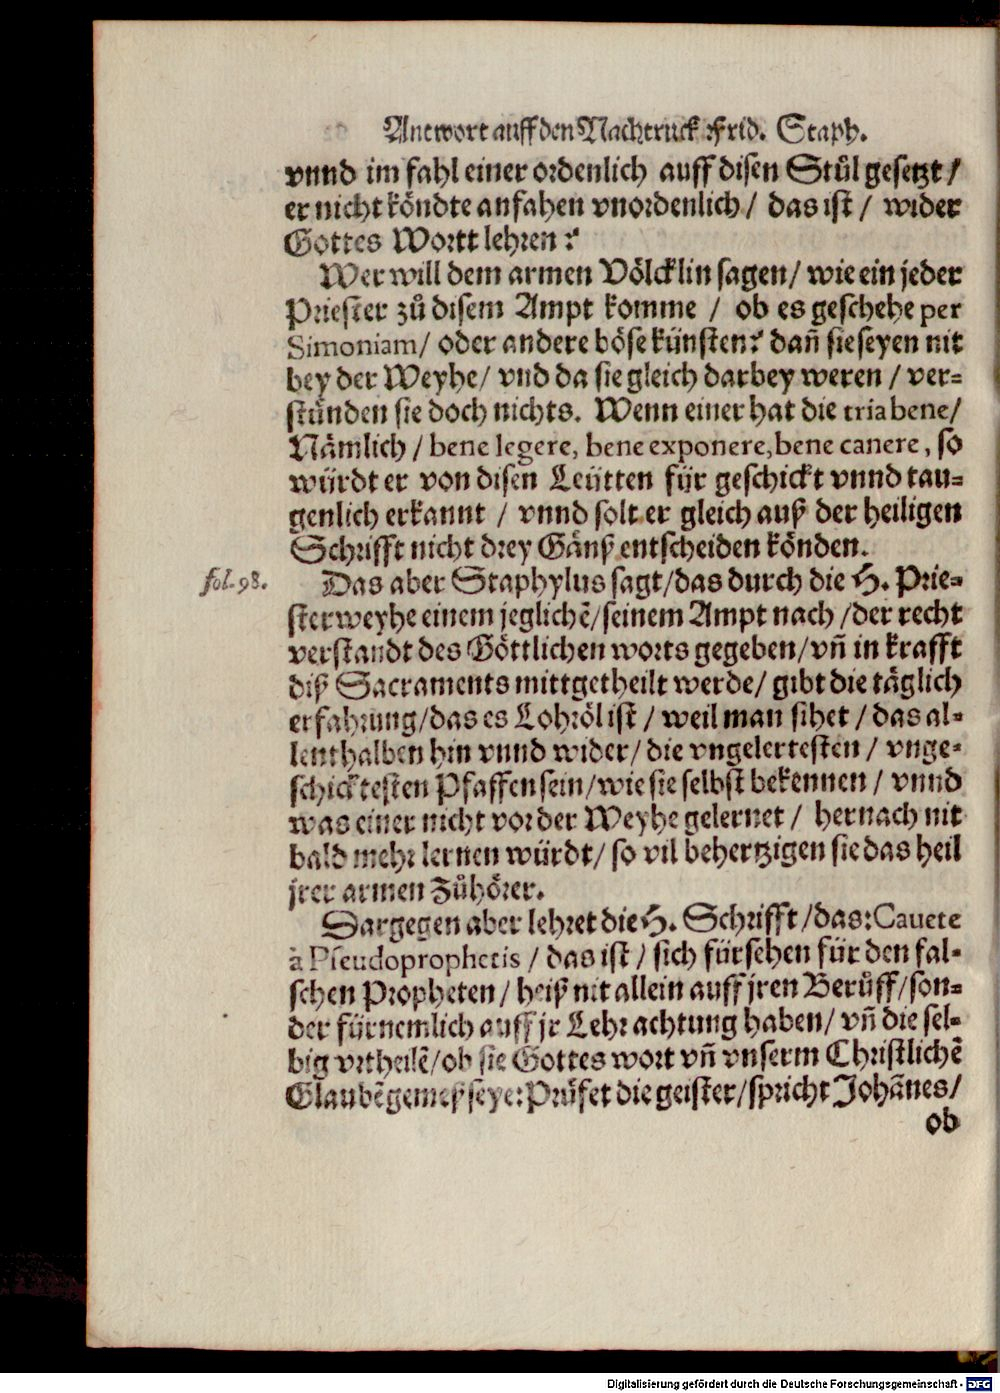 Antwort auff den Nachtruck Frid. Staph.
vnnd im fahl einer ordenlich auff disen Stůl gesetzt /
er nicht köndte anfahen vnordenlich / das ist / wider
Gottes Wortt lehren?
Wer will dem armen Völcklin sagen / wie ein jeder
Priester zů disem Ampt komme / ob es geschehe per
Simoniam / oder andere böse künsten? dañ sie seyen nit
bey der Weyhe / vnd da sie gleich darbey weren / ver=
stünden sie doch nichts. Wenn einer hat die tria bene /
Nämlich / bene legere, bene exponere, bene canere, so
würdt er von disen Leütten für geschickt vnnd tau=
genlich erkannt / vnnd solt er gleich auß der heiligen
Schrifft nicht drey Gänß entscheiden könden.
fol. 98.
Das aber Staphylus sagt / das durch die H. Prie=
sterweyhe einem jeglichẽ / seinem Ampt nach / der recht
verstandt des Göttlichen worts gegeben / vñ in krafft
diß Sacraments mittgetheilt werde / gibt die täglich
erfahrung / das es Lohröl ist / weil man sihet / das al=
lenthalben hin vnnd wider / die vngelertesten / vnge=
schicktesten Pfaffen sein / wie sie selbst bekennen / vnnd
was einer nicht vor der Weyhe gelernet / hernach nit
bald mehr lernen würdt / so vil behertzigen sie das heil
jrer armen Zůhörer.
Dargegen aber lehret die H. Schrifft / das: Cauete
à Pseudoprophetis / das ist / sich fürsehen für den fal=
schen Propheten / heiß nit allein auff jren Berůff / son=
der fürnemlich auff jr Lehr achtung haben / vñ die sel=
big vrtheilẽ / ob sie Gottes wort vñ vnserm Christlichẽ
Glaubẽ gemeß seye: Prüfet die geister / spricht Johãnes /
ob
Digitalisierung gefördert durch die Deutsche Forschungsgemeinschaft - DFG